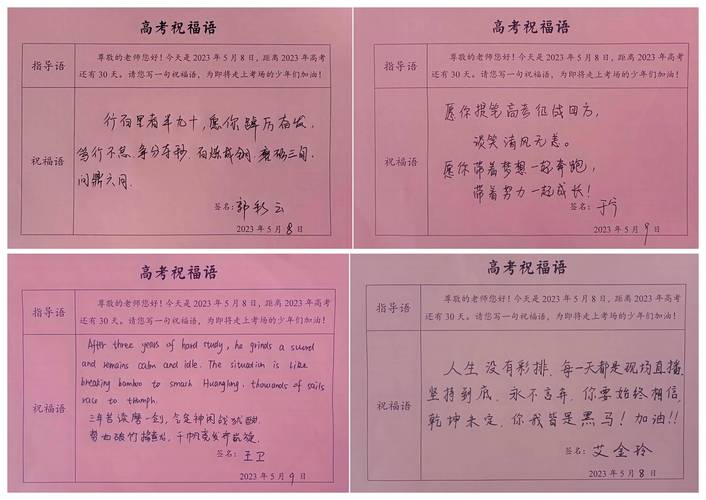 高考祝福语
指导语
尊敬的老师您好！今天是 2023 年 5 月 8 日，距离 2023 年高考
还有 30 天。请您写一句祝福语，为即将走上考场的少年们加油！
祝福语
行百里者半九十，愿你踔厉奋发，
笃行不怠，争分夺秒，百炼成钢，磨砺三旬，
问鼎六月。
签名：郭彩云
2023 年 5 月 8 日
高考祝福语
指导语
尊敬的老师您好！今天是 2023 年 5 月 8 日，距离 2023 年高考
还有 30 天。请您写一句祝福语，为即将走上考场的少年们加油！
祝福语
愿你提笔高考征战四方，
谈笑清风无恙。
愿你带着梦想一起奔跑，
带着努力一起成长！
签名：
2023 年 5 月 9 日
高考祝福语
指导语
尊敬的老师您好！今天是 2023 年 5 月 8 日，距离 2023 年高考
还有 30 天。请您写一句祝福语，为即将走上考场的少年们加油！
祝福语
After three years of hard study, he grinds a sword
and remains calm and idle. The situation is like
breaking bamboo to smash Huanglong, thousands of sails
race to triumph.
三年苦读磨一剑，气定神闲战犹酣
势如破竹捣黄龙，千帆竞发齐凯旋。
签名：王卫
2023 年 5 月 9 日
高考祝福语
指导语
尊敬的老师您好！今天是 2023 年 5 月 8 日，距离 2023 年高考
还有 30 天。请您写一句祝福语，为即将走上考场的少年们加油！
祝福语
人生没有彩排，每一天都是现场直播，
坚持到底，永不言弃，你要始终相信，
乾坤未定，你我皆是黑马！加油!!
签名：艾金玲
2023 年 5 月 8 日